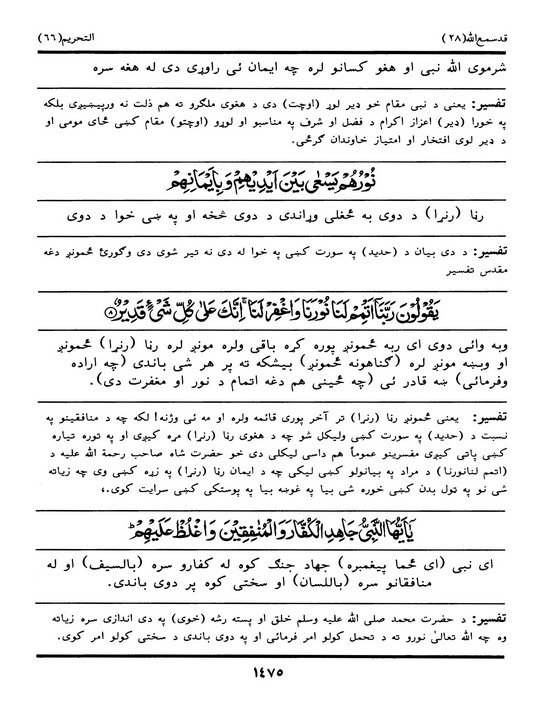 قدسمع الله (۲۸) التحریم (۶۶)
شرموی الله نبی او هغو کسانو لره چه ایمان ئی راوړی دی له هغه سره
تفسیر: یعنی د نبی مقام خو ډیر لوړ (اوچت) دی د هغوی ملګرو ته هم ذلت نه ورپیښیږی بلکه
په خورا (ډیر) اعزاز اکرام د فضل او شرف په مناسبو او لوړو (اوچتو) مقام کښی ځای مومی او
د ډیر لوی افتخار او امتیاز خاوندان ګرځی.
نُوْرُهُمْ يَسْعٰى بَيْنَ اَيْدِيْهِمْ وَبِاَيْمَانِهِمْ
رڼا (رنړا) د دوی به ځغلی وړاندی د دوی څخه او په ښی خوا د دوی
تفسیر: د دی بیان د (حدید) په سورت کښی په خوا له دی نه تیر شوی دی وګورئ ځمونږ دغه
مقدس تفسیر
يَقُوْلُوْنَ رَبَّنَآ اَتْمِمْ لَنَا نُوْرَنَا وَاغْفِرْ لَنَا ۚ اِنَّكَ عَلٰى كُلِّ شَىْءٍ قَدِيْرٌ ۝۸
وبه وائی دوی ای ربه ځمونږ پوره کړه باقی ولره مونږ لره رڼا (رنړا) ځمونږ
او وبښه مونږ لره (ګناهونه ځمونږ) بیشکه ته پر هر شی باندی (چه اراده
وفرمائی) ښه قادر ئی (چه ځینی هم دغه اتمام د نور او مغفرت دی).
تفسیر: یعنی ځمونږ رڼا (رنړا) تر آخر پوری قائمه ولره او مه ئی وژنه! لکه چه د منافقینو په
نسبت د (حدید) په سورت کښی ولیکل شو چه د هغوی رڼا (رنړا) مړه کیږی او په توره تیاره
کښی پاتی کیږی مفسرینو عموماً هم داسی لیکلی دی خو حضرت شاه صاحب رحمة الله علیه د
(اتمم لنانورنا) د مراد په بیانولو کښی لیکی چه د ایمان رڼا (رنړا) په زړه کښی وی چه زیاته
شی نو په ټول بدن کښی خوره شی بیا په غوښه بیا په پوستکی کښی سرایت کوی.،
يٰٓاَيُّهَا النَّبِىُّ جَاهِدِ الْكُفَّارَ وَالْمُنٰفِقِيْنَ وَاغْلُظْ عَلَيْهِمْ ؕ
ای نبی (ای ځما پیغمبره) جهاد جنګ کوه له کفارو سره (بالسیف) او له
منافقانو سره (باللسان) او سختی کوه پر دوی باندی.
تفسیر: د حضرت محمد صلی الله علیه وسلم خلق او پسته رشه (خوی) په دی اندازی سره زیاته
وه چه الله تعالیٰ نورو ته د تحمل کولو امر فرمائی او په دوی باندی د سختی کولو امر کوی.
۱٤۷۵